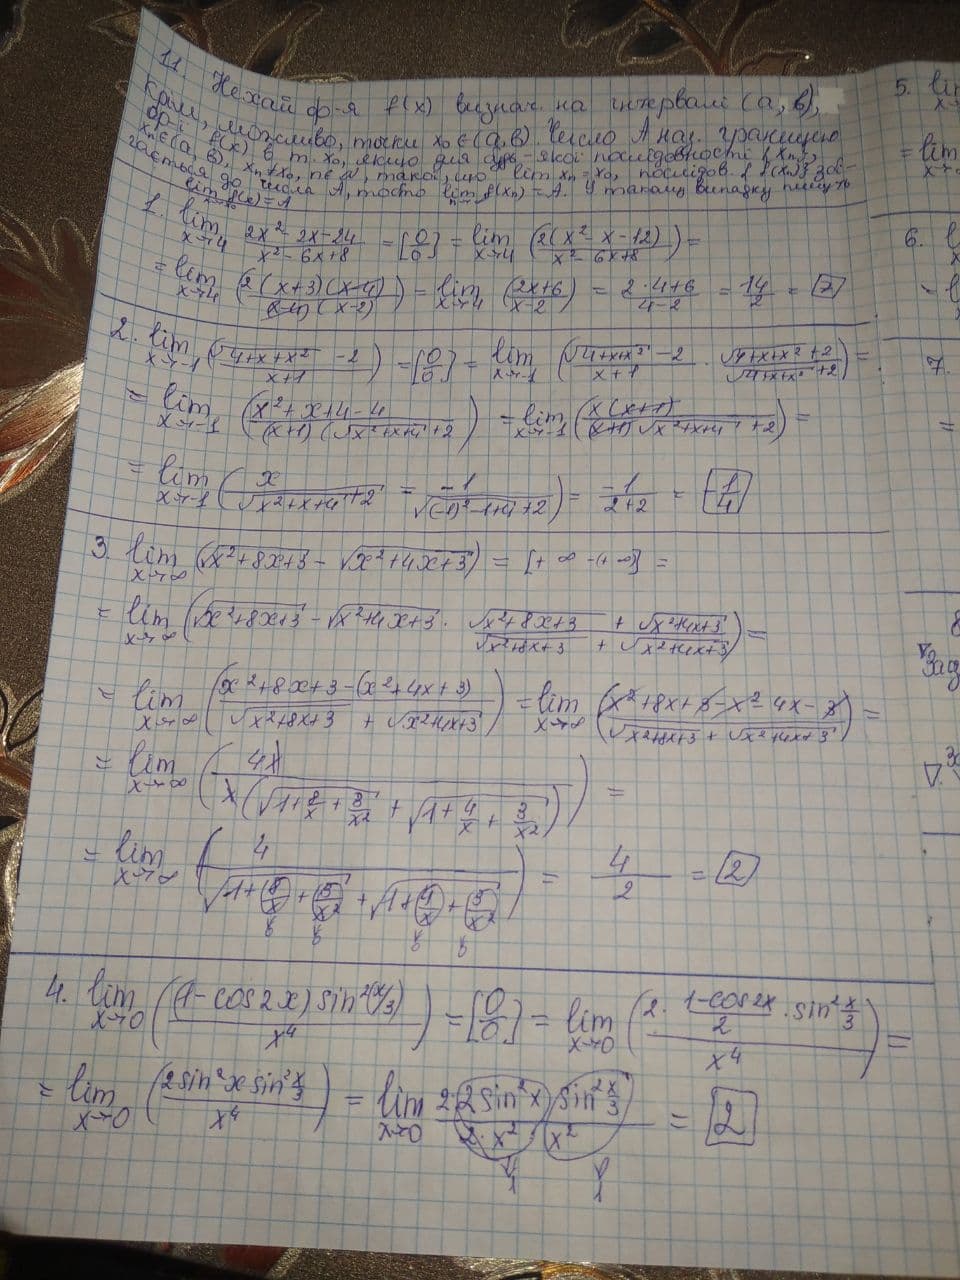 11. Нехай ф-я f(x) визнач. на інтервалі (a, b),
крім, можливо, точки x₀ ∈ (a, b). Число A наз. границею
ф-ї f(x) в т. x₀, якщо для будь-якої послідовності {xₙ},
xₙ ∈ (a, b), xₙ ≠ x₀, n ∈ N, такої, що lim xₙ = x₀, послідов. {f(xₙ)} збі-
гається до числа A, тобто lim f(xₙ) = A. У такому випадку пишуть
lim f(x) = A
1. lim x→4 (2x² - 2x - 24)/(x² - 6x + 8) = [0/0] = lim x→4 (2(x² - x - 12)/(x² - 6x + 8)) =
= lim x→4 (2(x+3)(x-4)/((x-4)(x-2))) = lim x→4 ((2x+6)/(x-2)) = (2·4+6)/(4-2) = 14/2 = 7
2. lim x→-1 ((√(4+x+x²) - 2)/(x+1)) = [0/0] = lim x→-1 ((√(4+x+x²) - 2)/(x+1) · (√(4+x+x²) + 2)/(√(4+x+x²) + 2)) =
= lim x→-1 ((x² + x + 4 - 4)/((x+1)(√(x²+x+4) + 2)) = lim x→-1 (x(x+1)/((x+1)√(x²+x+4) + 2)) =
= lim x→-1 (x/(√(x²+x+4) + 2) = -1/(√((-1)²-1+4) + 2)) = -1/(2+2) = -1/4
3. lim x→∞ (√(x²+8x+3) - √(x²+4x+3)) = [+∞ -(+∞)] =
= lim x→∞ (√(x²+8x+3) - √(x²+4x+3) · (√(x²+8x+3) + √(x²+4x+3))/(√(x²+8x+3) + √(x²+4x+3))) =
= lim x→∞ ((x²+8x+3-(x²+4x+3))/(√(x²+8x+3) + √(x²+4x+3))) = lim x→∞ ((x²+8x+3-x²-4x-3)/(√(x²+8x+3) + √(x²+4x+3))) =
= lim x→∞ (4x/(x(√(1+8/x+3/x²) + √(1+4/x+3/x²)))) =
= lim x→∞ (4/(√(1+8/x+3/x²) + √(1+4/x+3/x²))) = 4/2 = 2
0 0 0 0
4. lim x→0 ((1-cos2x) sin²(x/3)/x⁴) = [0/0] = lim x→0 (2·(1-cos2x)/2 · sin² x/3 / x⁴) =
= lim x→0 (2sin²x sin² x/3 / x⁴) = lim x→0 2·2sin²x · sin² x/3 / (2·x² · x²) = 2
1 1
5. lim
= lim
6.
7.
=
8